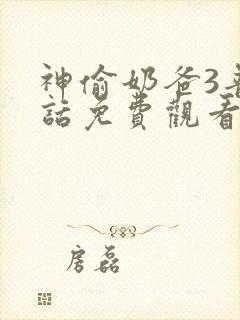 神偷奶爸3普
話免費觀看
房磊